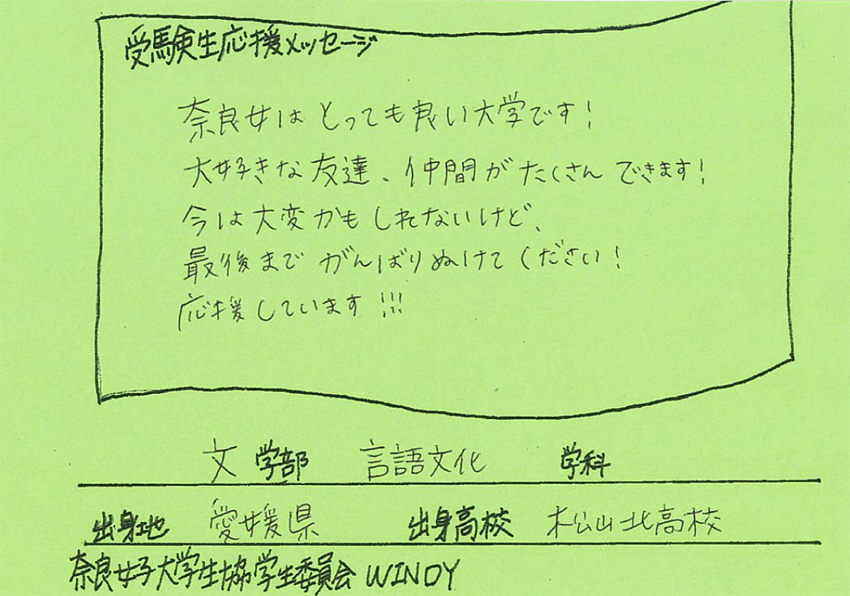 受験生応援メッセージ
奈良女はとっても良い大学です!
大好きな友達、仲間がたくさんできます!
今は大変かもしれないけど、
最後までがんばりぬけてください!
応援しています!!!
文 学部 言語文化 学科
出身地 愛媛県 出身高校 松山北高校
奈良女子大学生協学生委員会 WINDY